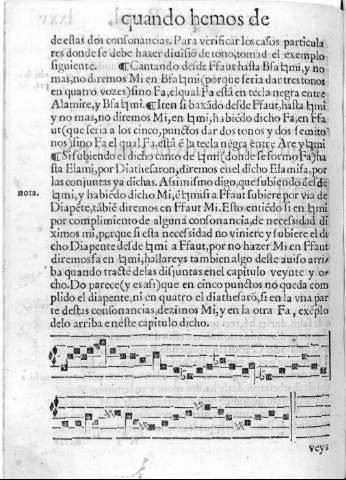 quando hemos de
de estas dos consonancias. Para verificar los casos particula
res donde se debe hazer diuisiõ de tono, tomad el exemplo
siguiente. ¶ Cantando desde Ffaut hasta Bfa♮mi, y no
mas, no diremos Mi en Bfa♮mi (porque seria dar tres tonos
en quatro vozes) sino Fa, el qual Fa està en tecla negra entre
Alamire, y Bfa♮mi. ¶ Iten si baxãdo desde Ffaut, hasta ♮mi
y no mas, no diremos Mi, en ♮mi, habiẽdo dicho Fa, en Ffa
ut (que seria a los cinco, punctos dar dos tonos y dos semito
nos) sino Fa el qual Fa, està ẽ la tecla nẽgra entre Are y ♮mi
¶ Si subiendo el dicho canto de ♮mi (donde se formo Fa) ha
sta Elami, por Diathesaron, diremos en el dicho Elami fa, por
las conjuntas ya dichas. Assi mismo digo, que subiendo desde
nota.
♮mi, y habiẽdo dicho Mi, ẽ ♮mi si a Ffaut subiere por via de
Diapẽte, tãbiẽ diremos en Ffaut Mi. Esto entiẽdo si en ♮mi
por complimiento de alguna consonancia, de necesidad di
ximos mi, porque si esta necessidad no viniere y subiere el di
cho Diapente desde ♮mi a Ffaut, por no hazer Mi en Ffaut
diremos fa en ♮mi, hallareys tambien algo deste auiso arri-
ba quando tractè de las disjuntas en el capitulo veynte y o-
cho. Do parece (y es asi) que en cinco punctos no queda com
plido el diapente, ni en quatro el diathesarõ, si en la vna par
te destas consonancias, dezimos Mi, y en la otra Fa, exẽplo
delo arriba e nẽste capitulo dicho.
veys